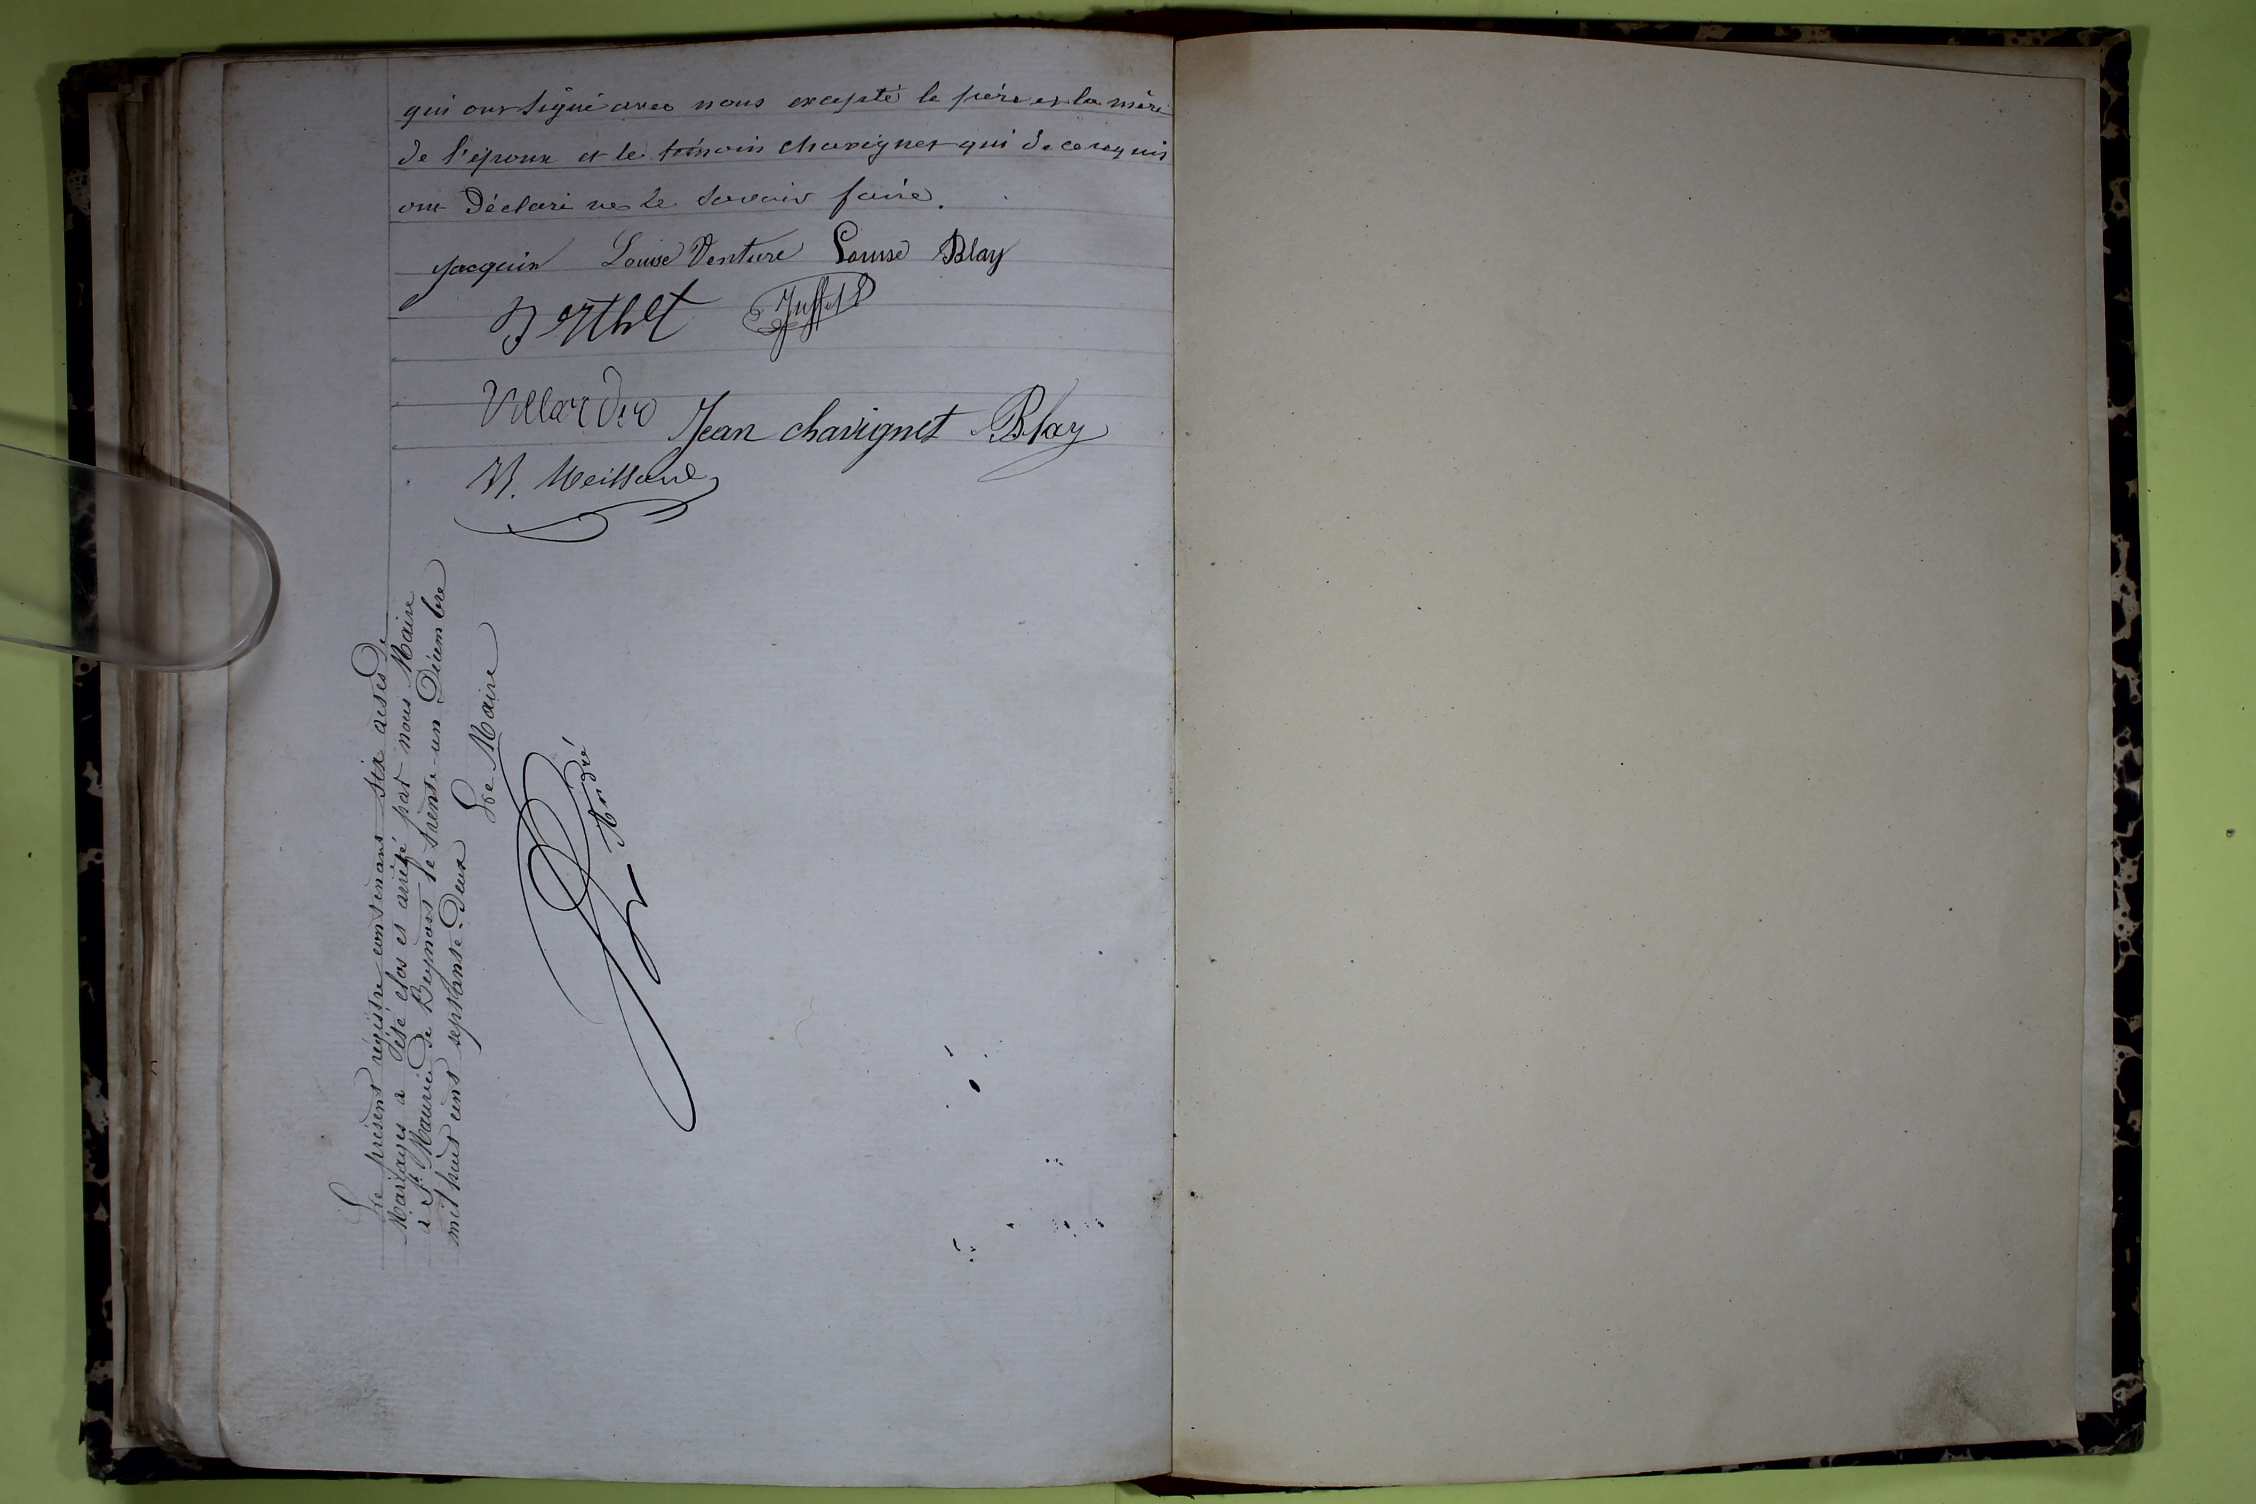 qui ont signé avec nous excepté le père et la mère
de l'époux et le témoin chavignet qui de ce requis
ont déclaré ne le savoir faire.
Jacquin Louise Venture Louise Blay
Berthet
Jean chavignet Blay
Le présent régistre contenant six actes de
Mariages a été clos et arrêté par nous Maire
à St Maurice de Beynost le trente-un Décembre
mil huit cent septante-deux
Le Maire
André